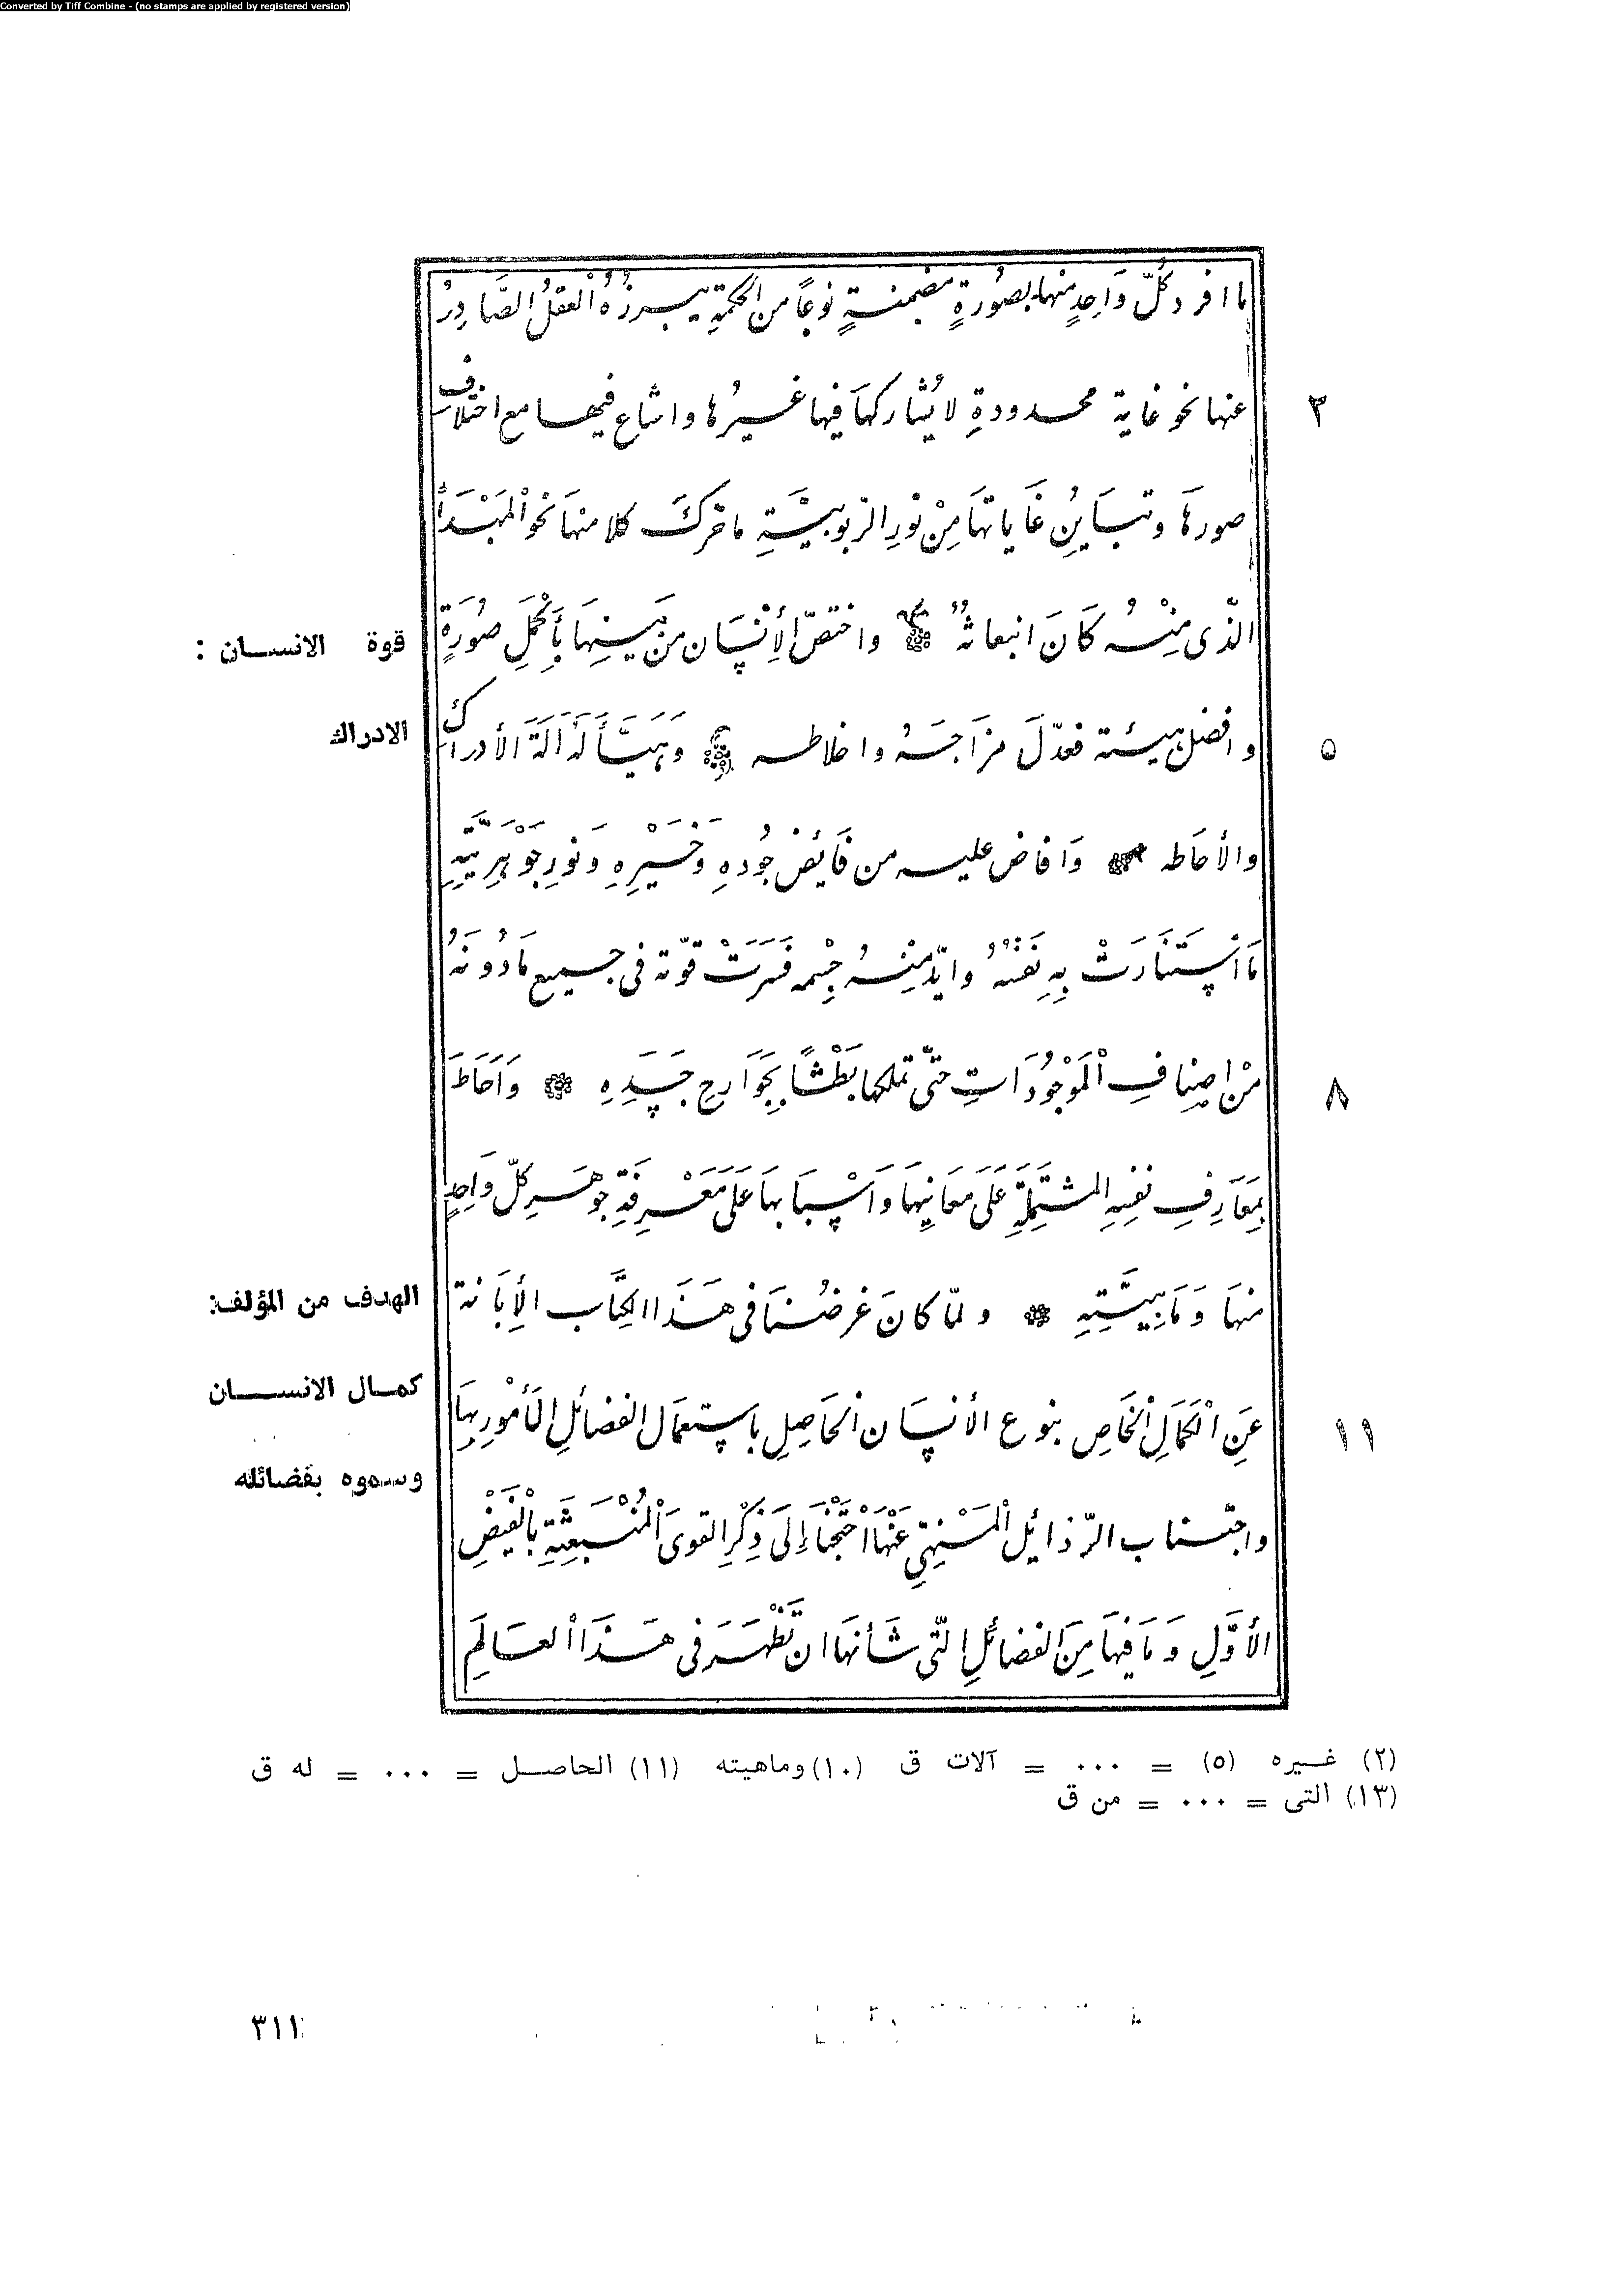 Converted by Tiff Combine - (no stamps are applied by registered version)
ما افرد كُلّ وَاحِدٍ منها بصُورَةٍ مضمنةٍ نوعًا من الحكمةِ يبرزُهُ الْعَقلُ الصَّادِرُ
عنها نحو غاية محدودةٍ لا يُشاركهَا فيها غيرُها واشاع فيها مع اختلاف
٢
صورهَا وتبَايُنِ غَاياتهَا مِنْ نورِ الرّبوبيَّةِ ما حرّكَ كلا منهَا نَحْو الْمَبْدَأ
الذّى مِنْهُ كَانَ انبعاثُهُ واختصّ الأِنْسَان من بَينِهَا بأَكْمَلِ صُورَةٍ
قوة الانسان :
وافضل هيئة فعدّلَ مزَاجَهُ واخلاطه وَهَيَّأَ لَهُ آلَةَ الأدراك
٥
الادراك
والأحَاطه وَافاض عليه من فَائضِ جُودهِ وَخَيْرِهِ وَنورِ جَوْهَرِيَّتِهِ
مَا اسْتَنَارَتْ بِهِ نَفْسُهُ وايّد مِنْهُ جِسْمه فَسَرَتْ قوّته فى جميع مَا دُونَهُ
مِنْ اصِنافِ الْمَوْجُودَاتِ حتّى تملكها بَطْشًا بِجَوَارِحِ جَسَدِهِ وَاَحَاطَ
٨
بِمَعَارِفِ نفسِهِ المشتَمِلَةِ عَلَى مَعَانِيهَا وَاَسْبَابهَا عَلَى مَعْرِفَةِ جوهَرِ كلّ وَاحِدٍ
منهَا وَمَاهِيَّتِهِ ولمّا كانَ غرضُنَا فى هَذَا الكِتَاب الأِبَانة
الهدف من المؤلف:
عَنِ الْكَمَالِ الْخَاصِ بنوع الأنسَان الْحَاصِلِ باستِعمَال الفضَائلِ الْمَأمُورِ بهَا
١١
كمال الانسان
وسموه بفضائله
واجتناب الرّذائِل الْمَنْهِيّ عَنْهَا احْتَجْنَا إِلَى ذِكْرِ القوىَ الْمُنْبَعِثَةِ بِالْفَيْضِ
الأوَّلِ وَمَا فيهَا مِنَ الفضَائلِ الَّتى شَأنهَا ان تَظْهَرَ فى هَذَا الْعَالَمِ
(٢) غيره (٥) = ٠٠٠ = آلات ق (١٠) وماهيته (١١) الحاصل = ٠٠٠ = له ق
(١٣) التى = ٠٠٠ = من ق
٣١١